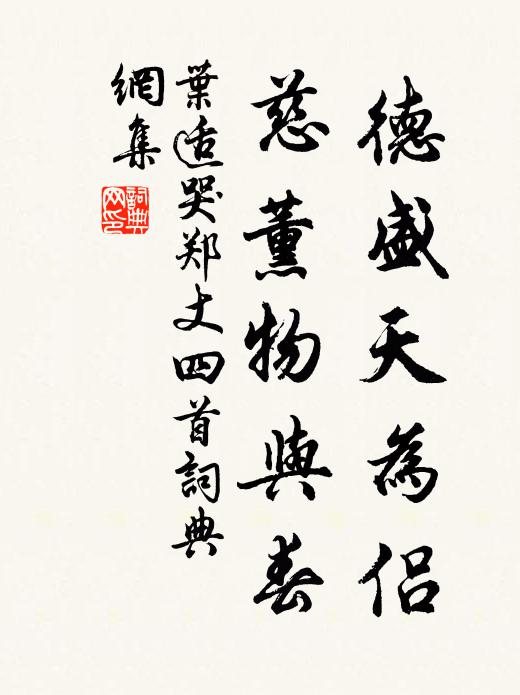 德盛天為侣
慈薰物與春
葉适哭郑丈四首詞典
網集
詞典
网印